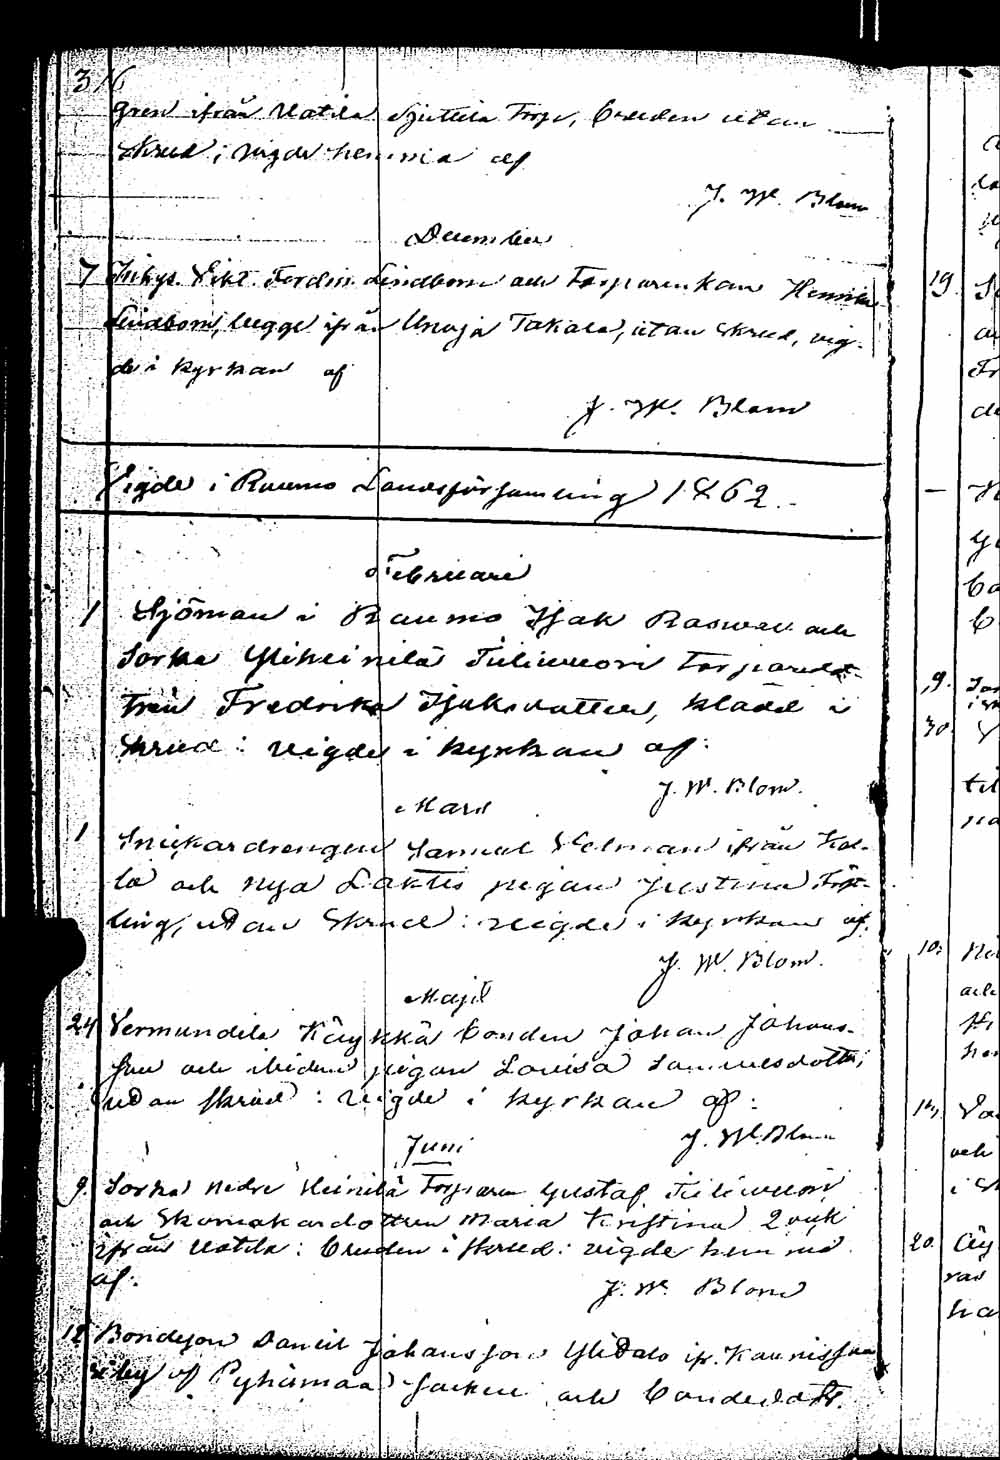 316
gren ifrån Uotila Sjuttila Torp, bruden utan
skrud; vigde hemma af
J. W. Blom
December
7 Inhys. Vikt. Ferdin. Lindbom och Torparenkan Henrika
Lindbom, begge ifrån Unaja Takala, utan skrud, vig-
de i kyrkan af
J. W. Blom
Vigde i Raumo Landsförsamling 1862.
Februari
1 Sjöman i Raumo Isak Raswall och
Sorka Ylikeinilä Tuliwuori torparedot-
tren Fredrika Isaksdotter, klädd i
skrud: vigde i kyrkan af:
J. W. Blom.
Mars
1 Snickardrengen Samuel Velman ifrån Kol-
la och Nya Laktis pigan Justina Töft-
ling, utan skrud: vigde i kyrkan af.
J. W. Blom.
Maji
24 Vermundila Käykkä bonden Johan Johans-
son och ibidem pigan Lovisa Samuelsdotter,
utan skrud: vigde i kyrkan af:
J. W. Blom
Juni
9. Sorka nedre Heinilä Torparen Gustaf Tuliwuori
och Skomakardottren Maria Kristina Qvik
ifrån Uotila: bruden i skrud: vigde hemma
af:
J. W. Blom
12 Bondeson Daniel Johansson Ylitalo ifr. Kaunissaa
ri by af Pyhämaa Socken och bondedott.
19.
9.
30.
10.
20.